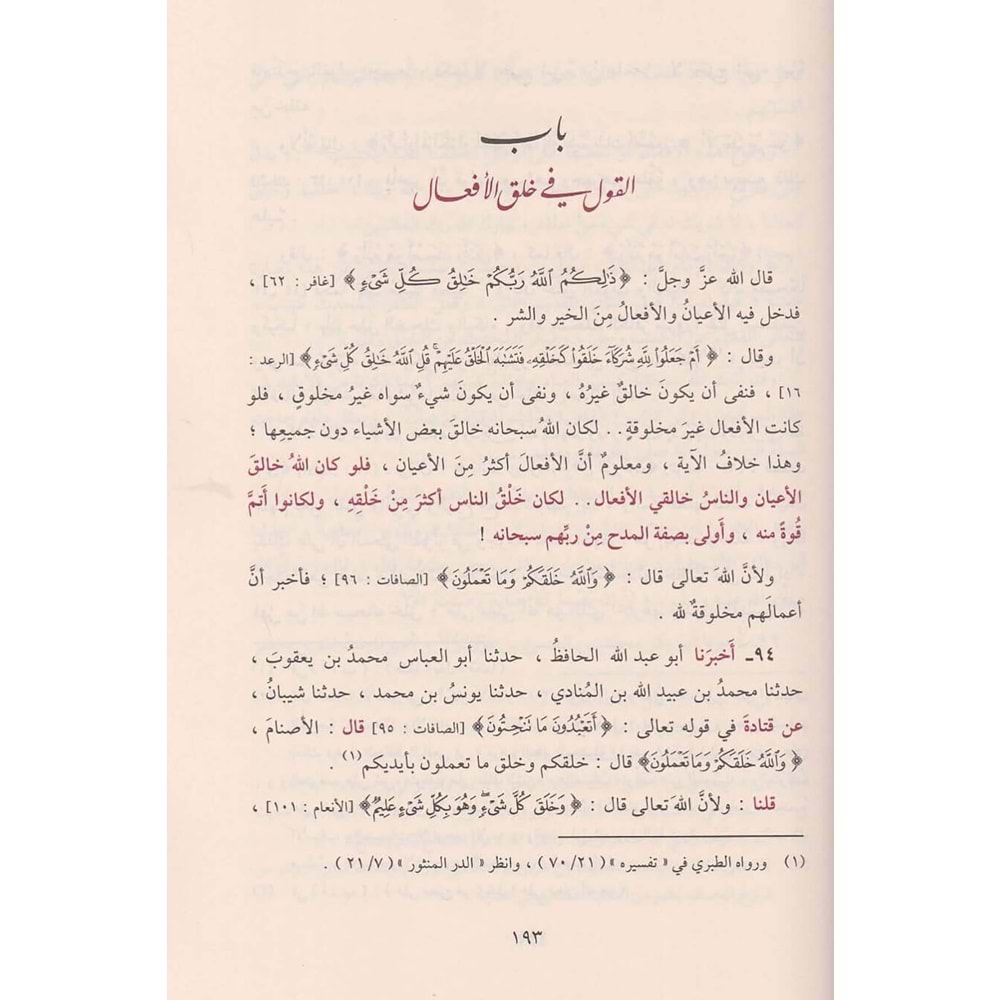 باب
القول في خلق الأفعال
قال الله عزَّ وجلَّ : ﴿ ذَٰلِكُمُ ٱللَّهُ رَبُّكُمْ خَٰلِقُ كُلِّ شَىْءٍ ﴾ [غافر : ٦٢] ،
فدخل فيه الأعيانُ والأفعالُ مِنَ الخير والشر .
وقال : ﴿ أَمْ جَعَلُوا۟ لِلَّهِ شُرَكَآءَ خَلَقُوا۟ كَخَلْقِهِۦ فَتَشَٰبَهَ ٱلْخَلْقُ عَلَيْهِمْ ۚ قُلِ ٱللَّهُ خَٰلِقُ كُلِّ شَىْءٍ ﴾ [الرعد :
١٦] ، فنفى أن يكونَ خالقٌ غيرُهُ ، ونفى أن يكونَ شيءٌ سواه غيرُ مخلوقٍ ، فلو
كانت الأفعال غيرَ مخلوقةٍ . . لكان اللهُ سبحانه خالقَ بعض الأشياء دون جميعِها ؛
وهذا خلافُ الآية ، ومعلومٌ أنَّ الأفعالَ أكثرُ مِنَ الأعيان ، فلو كان اللهُ خالقَ
الأعيان والناسُ خالقي الأفعال . . لكان خَلْقُ الناس أكثرَ مِنْ خَلْقِهِ ، ولكانوا أتمَّ
قُوةً منه ، وأَولى بصفة المدح مِنْ ربِّهم سبحانه !
ولأنَّ اللهَ تعالى قال : ﴿ وَٱللَّهُ خَلَقَكُمْ وَمَا تَعْمَلُونَ ﴾ [الصافات : ٩٦] ؛ فأخبر أنَّ
أعمالَهم مخلوقةٌ لله .
٩٤ـ أَخبرَنا أبو عبد الله الحافظُ ، حدثنا أبو العباس محمدُ بن يعقوبَ ،
حدثنا محمدُ بن عبيد الله بن المُنادي ، حدثنا يونسُ بن محمد ، حدثنا شيبانُ ،
عن قتادةَ في قوله تعالى : ﴿ أَتَعْبُدُونَ مَا تَنْحِتُونَ ﴾ [الصافات : ٩٥] قال : الأصنامَ ،
﴿ وَٱللَّهُ خَلَقَكُمْ وَمَا تَعْمَلُونَ ﴾ قال : خلقكم وخلق ما تعملون بأيديكم(١) .
قلنا : ولأنَّ اللهَ تعالى قال : ﴿ وَخَلَقَ كُلَّ شَىْءٍ ۖ وَهُوَ بِكُلِّ شَىْءٍ عَلِيمٌ ﴾ [الأنعام : ١٠١] ،
(١) ورواه الطبري في « تفسيره » ( ٧٠/٢١ ) ، وانظر « الدر المنثور » ( ٢١/٧ ) .
١٩٣